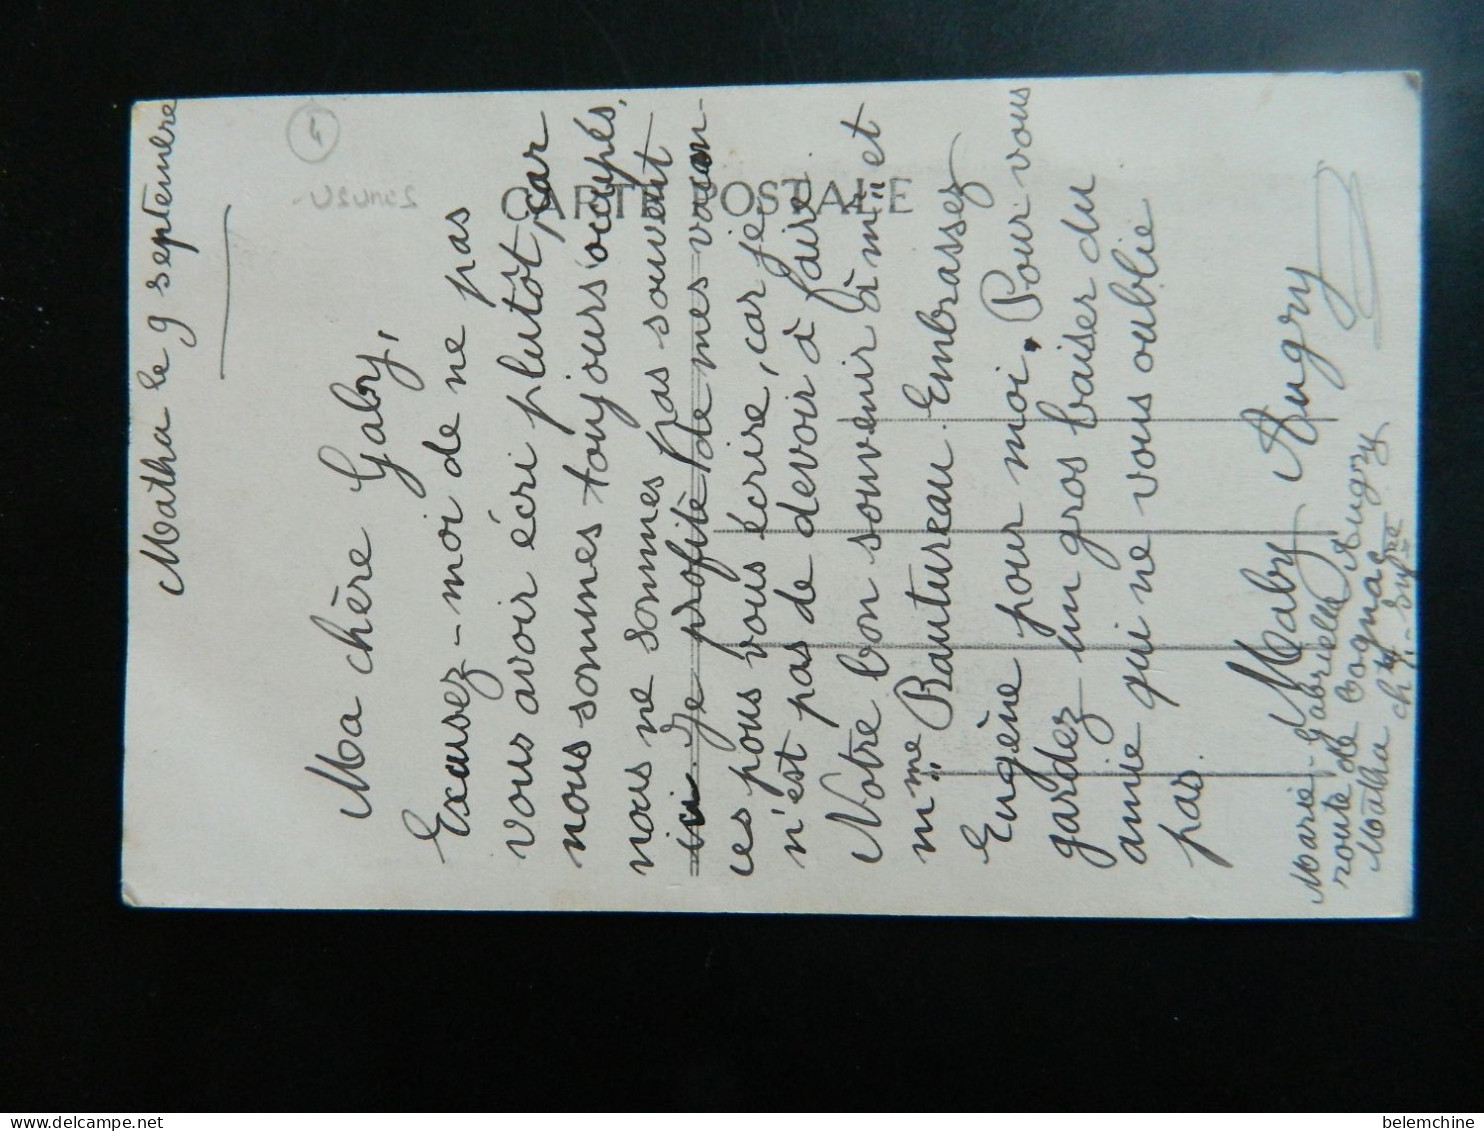 Matha le 9 septembre
4
CARTE POSTALE
Ma chère Gaby,
Excusez-moi de ne pas
vous avoir écri plutôt, car
nous sommes toujours occupés,
nous ne sommes pas souvent
ici. Je profite de mes vacan-
ces pous vous écrire, car je
n'est pas de devoir à faire.
Votre bon souvenir à mr et
mme Bautureau. Embrassez
Eugène pour moi. Pour vous
gardez un gros baiser du
amie qui ne vous oublie
pas.
Maby Augry
Marie-Gabrielle Augry
route de Cognac
Matha chte-Infre
delcampe.net
belemchine